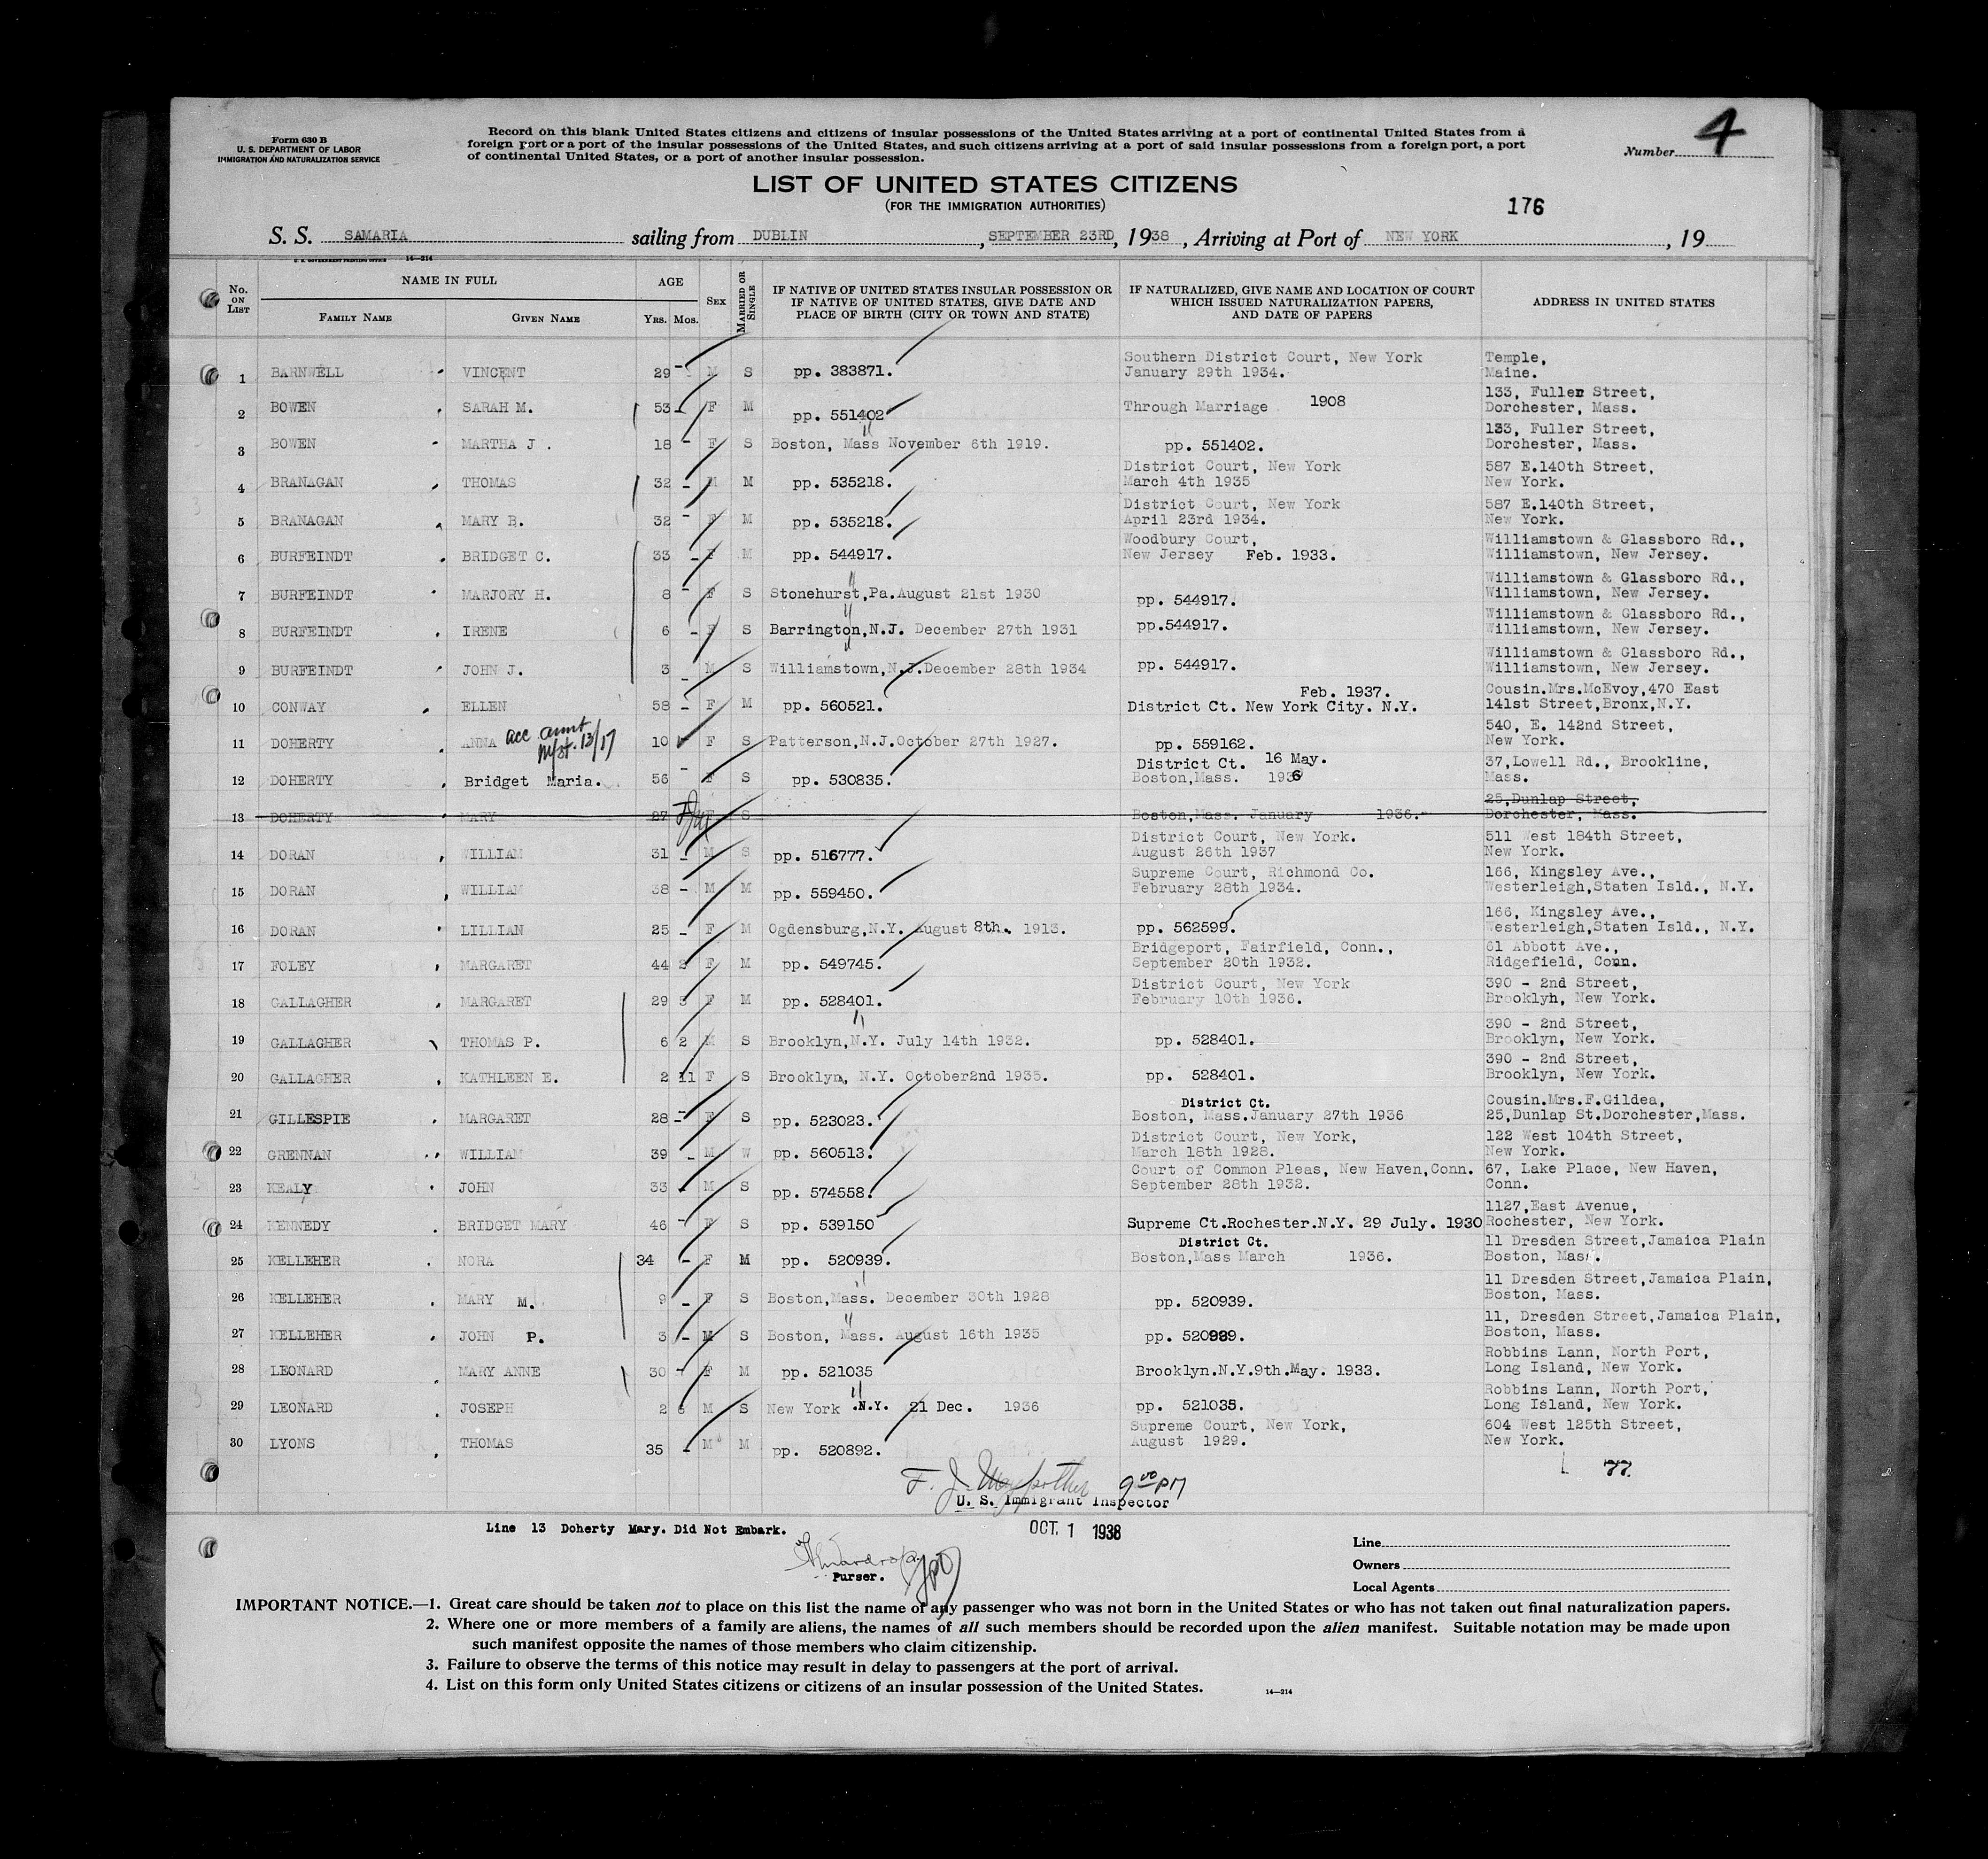 Form 630 B
U. S. DEPARTMENT OF LABOR
IMMIGRATION AND NATURALIZATION SERVICE
Record on this blank United States citizens and citizens of insular possessions of the United States arriving at a port of continental United States from a
foreign port or a port of the insular possessions of the United States, and such citizens arriving at a port of said insular possessions from a foreign port, a port
of continental United States, or a port of another insular possession.
Number 4
LIST OF UNITED STATES CITIZENS
(FOR THE IMMIGRATION AUTHORITIES)
176
S. S. SAMARIA sailing from DUBLIN, SEPTEMBER 23RD, 1938, Arriving at Port of NEW YORK, 19
U. S. GOVERNMENT PRINTING OFFICE 14—214
No. ON LIST
NAME IN FULL
FAMILY NAME GIVEN NAME
AGE
YRS. MOS.
SEX
MARRIED OR SINGLE
IF NATIVE OF UNITED STATES INSULAR POSSESSION OR
IF NATIVE OF UNITED STATES, GIVE DATE AND
PLACE OF BIRTH (CITY OR TOWN AND STATE)
IF NATURALIZED, GIVE NAME AND LOCATION OF COURT
WHICH ISSUED NATURALIZATION PAPERS,
AND DATE OF PAPERS
ADDRESS IN UNITED STATES
1 BARNWELL VINCENT 29 - M S pp. 383871. Southern District Court, New York January 29th 1934. Temple, Maine.
2 BOWEN SARAH M. 53 - F M pp. 551402 Through Marriage 1908 133, Fuller Street, Dorchester, Mass.
3 BOWEN MARTHA J . 18 - F S Boston, Mass November 6th 1919. pp. 551402. 133, Fuller Street, Dorchester, Mass.
4 BRANAGAN THOMAS 32 - M M pp. 535218. District Court, New York March 4th 1935 587 E.140th Street, New York.
5 BRANAGAN MARY B. 32 - F M pp. 535218. District Court, New York April 23rd 1934. 587 E.140th Street, New York.
6 BURFEINDT BRIDGET C. 33 - F M pp. 544917. Woodbury Court, New Jersey Feb. 1933. Williamstown & Glassboro Rd., Williamstown, New Jersey.
7 BURFEINDT MARJORY H. 8 - F S Stonehurst,Pa.August 21st 1930 pp. 544917. Williamstown & Glassboro Rd., Williamstown, New Jersey.
8 BURFEINDT IRENE 6 - F S Barrington,N.J. December 27th 1931 pp.544917. Williamstown & Glassboro Rd., Williamstown, New Jersey.
9 BURFEINDT JOHN J. 3 - M S Williamstown,N.J.December 28th 1934 pp. 544917. Williamstown & Glassboro Rd., Williamstown, New Jersey.
10 CONWAY ELLEN 58 - F M pp. 560521. Feb. 1937. District Ct. New York City. N.Y. Cousin.Mrs.McEvoy,470 East 141st Street,Bronx,N.Y.
11 DOHERTY ANNA acc aunt 13/17 10 F S Patterson,N.J.October 27th 1927. pp. 559162. 540, E. 142nd Street, New York.
12 DOHERTY Bridget Maria. 56 - F S pp. 530835. District Ct. 16 May. Boston,Mass. 1936 37,Lowell Rd., Brookline, Mass.
13 DOHERTY MARY 27 F S Boston,Mass. January 1936. 25,Dunlap Street, Dorchester, Mass.
14 DORAN WILLIAM 31 - M S pp. 516777. District Court, New York. August 26th 1937 511 West 184th Street, New York.
15 DORAN WILLIAM 38 - M M pp. 559450. Supreme Court, Richmond Co. February 28th 1934. 166, Kingsley Ave., Westerleigh,Staten Isld., N.Y.
16 DORAN LILLIAN 25 - F M Ogdensburg,N.Y. August 8th. 1913. pp. 562599. 166, Kingsley Ave., Westerleigh,Staten Isld., N.Y.
17 FOLEY MARGARET 44 2 F M pp. 549745. Bridgeport, Fairfield, Conn., September 20th 1932. 61 Abbott Ave., Ridgefield, Conn.
18 GALLAGHER MARGARET 29 3 F M pp. 528401. District Court, New York February 10th 1936. 390 - 2nd Street, Brooklyn, New York.
19 GALLAGHER THOMAS P. 6 2 M S Brooklyn,N.Y. July 14th 1932. pp. 528401. 390 - 2nd Street, Brooklyn, New York.
20 GALLAGHER KATHLEEN E. 2 11 F S Brooklyn, N.Y. October2nd 1935. pp. 528401. 390 - 2nd Street, Brooklyn, New York.
21 GILLESPIE MARGARET 28 - F S pp. 523023. District Ct. Boston, Mass.January 27th 1936 Cousin.Mrs.F.Gildea, 25,Dunlap St.Dorchester,Mass.
22 GRENNAN WILLIAM 39 - M W pp. 560513. District Court, New York, March 18th 1928. 122 West 104th Street, New York.
23 KEALY JOHN 33 - M S pp. 574558. Court of Common Pleas, New Haven,Conn. September 28th 1932. 67, Lake Place, New Haven, Conn.
24 KENNEDY BRIDGET MARY 46 - F S pp. 539150 Supreme Ct.Rochester.N.Y. 29 July. 1930 1127,East Avenue, Rochester, New York.
25 KELLEHER NORA 34 - F M pp. 520939. District Ct. Boston,Mass March 1936. 11 Dresden Street,Jamaica Plain Boston, Mass.
26 KELLEHER MARY M. 9 - F S Boston,Mass. December 30th 1928 pp. 520939. 11 Dresden Street,Jamaica Plain, Boston, Mass.
27 KELLEHER JOHN P. 3 - M S Boston, Mass. August 16th 1935 pp. 520939. 11, Dresden Street,Jamaica Plain, Boston, Mass.
28 LEONARD MARY ANNE 30 - F M pp. 521035 Brooklyn.N.Y.9th.May. 1933. Robbins Lann, North Port, Long Island, New York.
29 LEONARD JOSEPH 2 6 M S New York .N.Y. 21 Dec. 1936 pp. 521035. Robbins Lann, North Port, Long Island, New York.
30 LYONS THOMAS 35 - M M pp. 520892. Supreme Court, New York, August 1929. 604 West 125th Street, New York.
77.
F. J. 9 00 PM
U. S. Immigrant Inspector
Line 13 Doherty Mary. Did Not Embark.
OCT. 1 1938
Purser.
Line
Owners
Local Agents
IMPORTANT NOTICE.—1. Great care should be taken not to place on this list the name of any passenger who was not born in the United States or who has not taken out final naturalization papers.
2. Where one or more members of a family are aliens, the names of all such members should be recorded upon the alien manifest. Suitable notation may be made upon
such manifest opposite the names of those members who claim citizenship.
3. Failure to observe the terms of this notice may result in delay to passengers at the port of arrival.
4. List on this form only United States citizens or citizens of an insular possession of the United States.
14—214